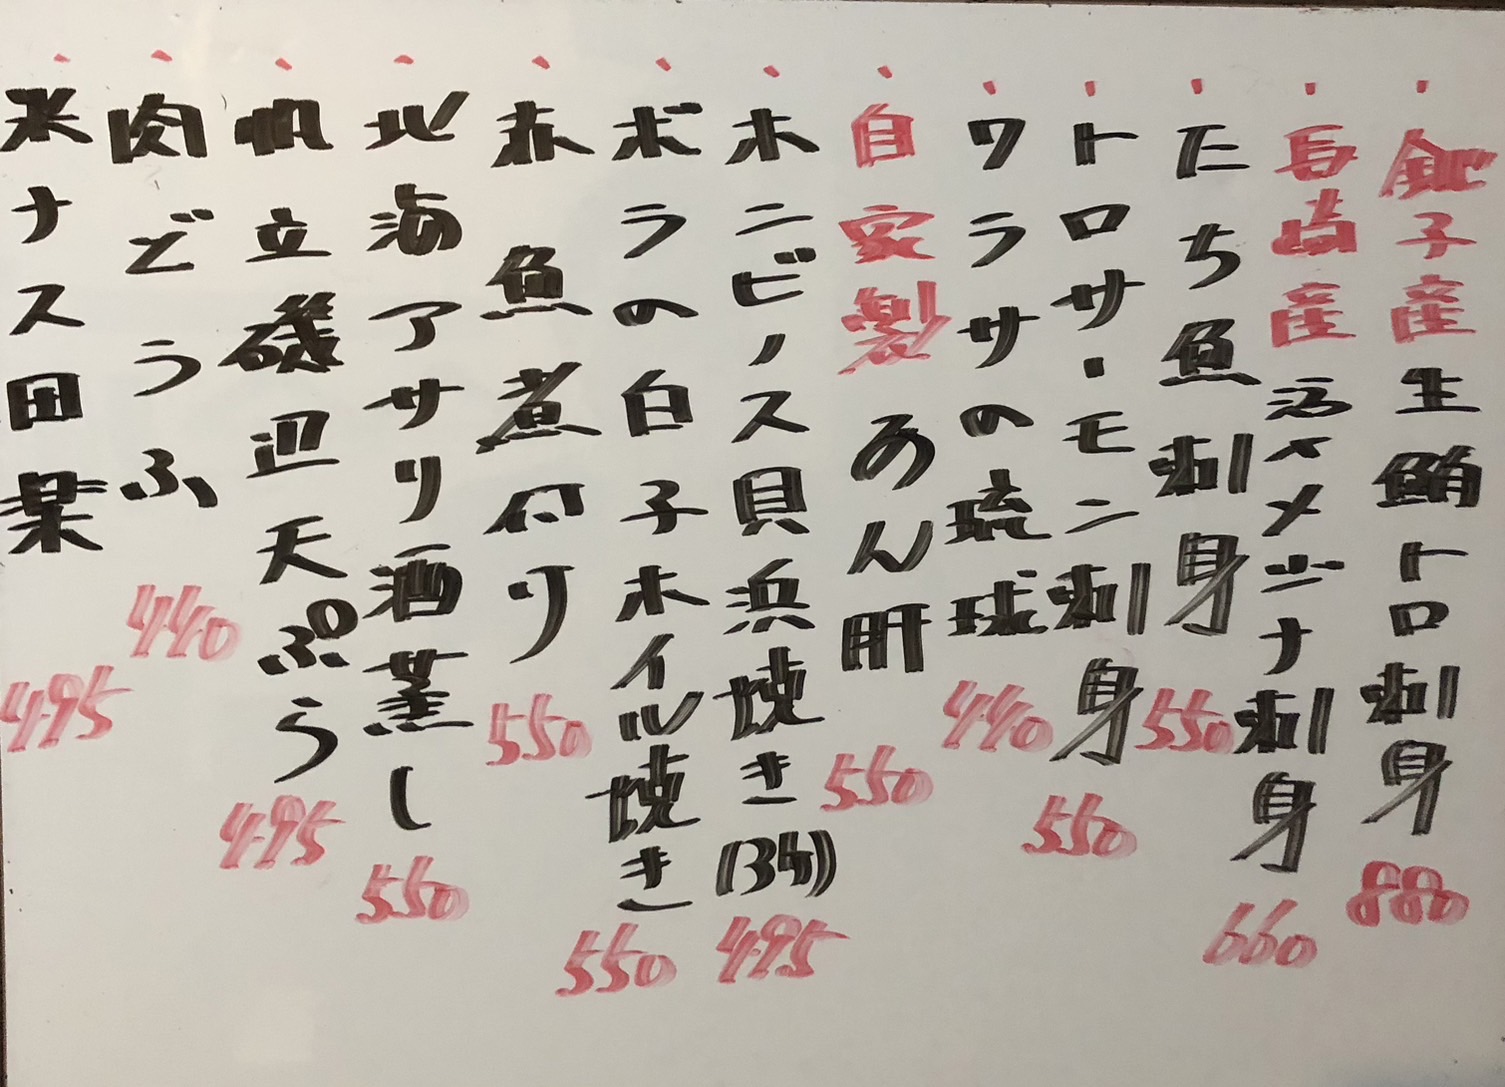 銚子産生鮪トロ刺身 880
長崎産活〆メジナ刺身 660
たち魚刺身 550
トロサ・モン刺身 550
ワラサの琉球 440
自家製あん肝 550
ホニビノス貝浜焼き(3ケ) 495
ボラの白子ホイル焼き 550
赤魚煮付り 550
北海アサリ酒蒸し 550
帆立磯辺天ぷら 495
肉どうふ 440
米ナス田葉 495